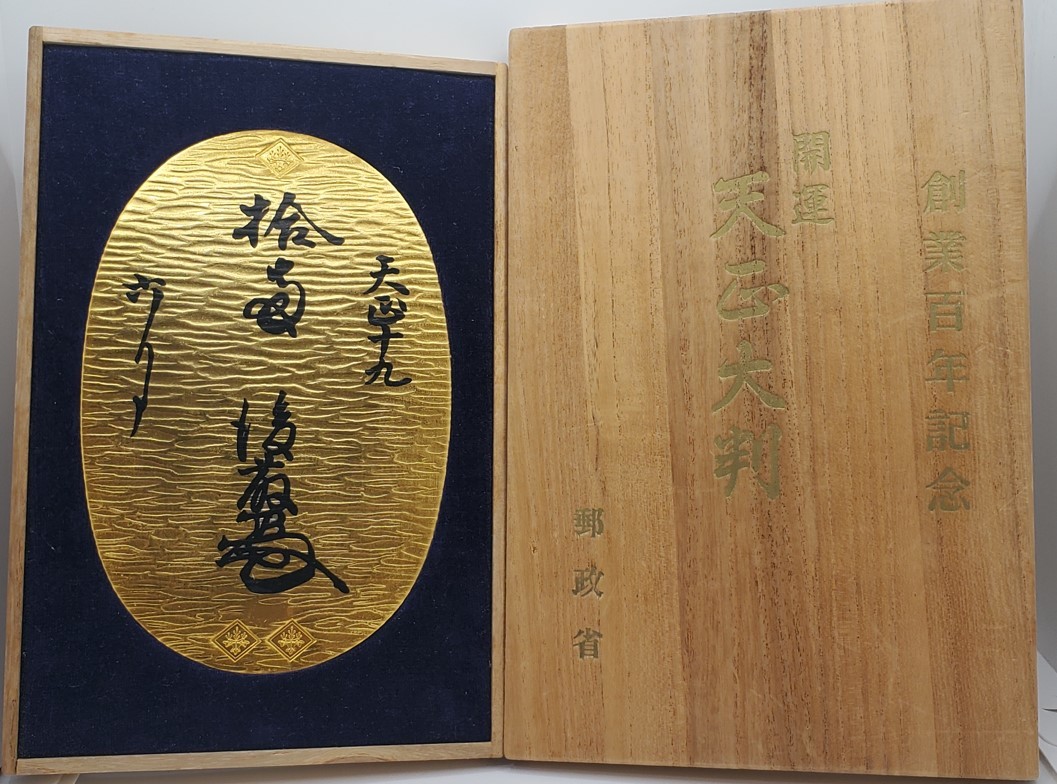 創業百年記念
開運
天正大判
郵政省
天正十九
拾両 後藤